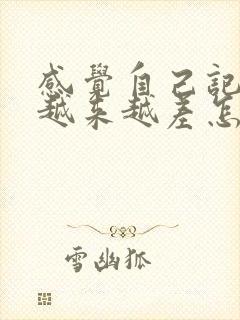 感覺自己記
越來越差怎
雪幽狐